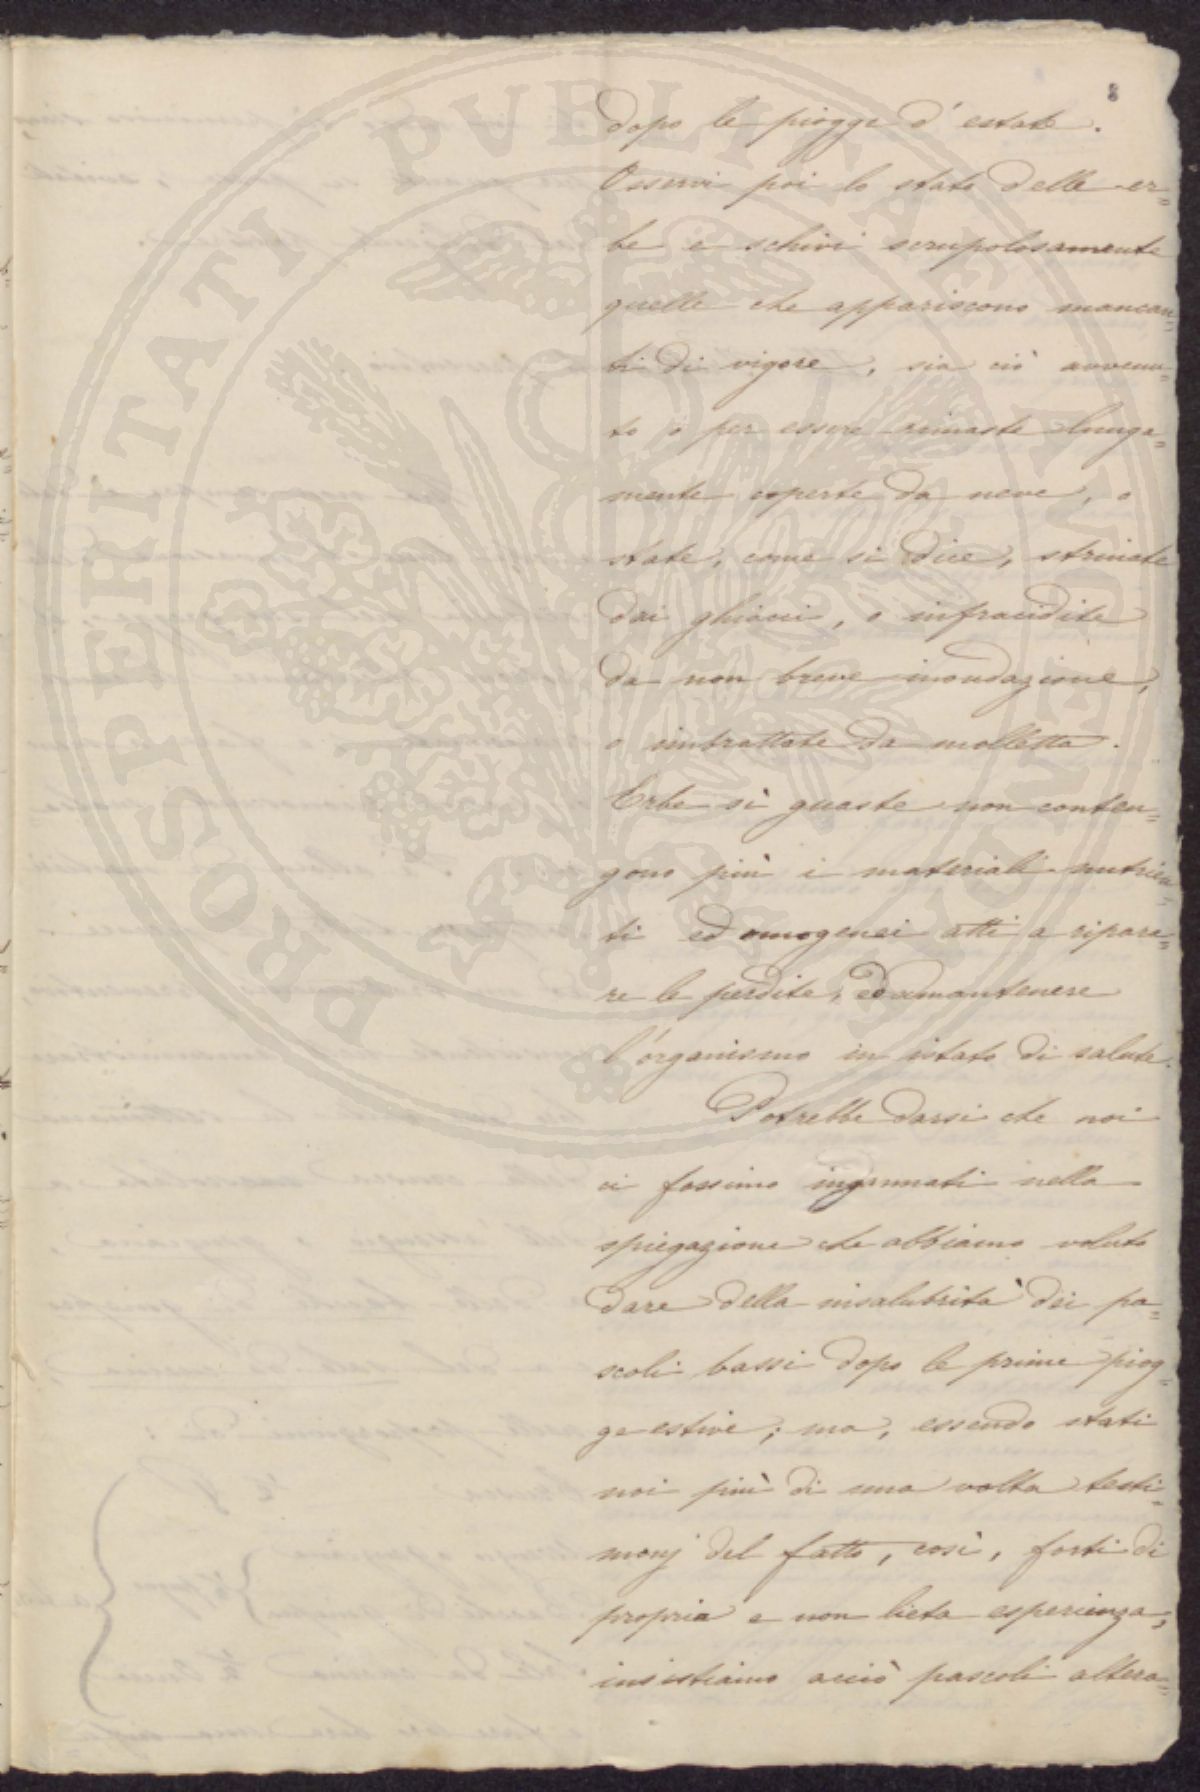 8
dopo le piogge d'estate.
Osservi poi lo stato delle er=
be e schivi scrupolosamente
quelle che appariscono mancan=
ti di vigore, sia ciò avvenu=
to o per essere rimaste lunga=
mente coperte da neve, o
state, come si dice, strinate
dai ghiacci, o infracidite
da non breve inondazione,
o imbrattate da molletta.
Erbe sì guaste non conten=
gono più i materiali nutrien=
ti ed omogenei atti a ripara=
re le perdite, ed a mantenere
l'organismo in istato di salute.
Potrebbe darsi che noi
ci fossimo ingannati nella
spiegazione che abbiamo voluto
dare della insalubrità dei pa=
scoli bassi dopo le prime piog=
ge estive; ma, essendo stati
noi più di una volta testi=
monj del fatto, così, forti di
propria e non lieta esperienza,
insistiamo acciò pascoli altera=
PROSPERITATI PVBLICAE AVGENDAE